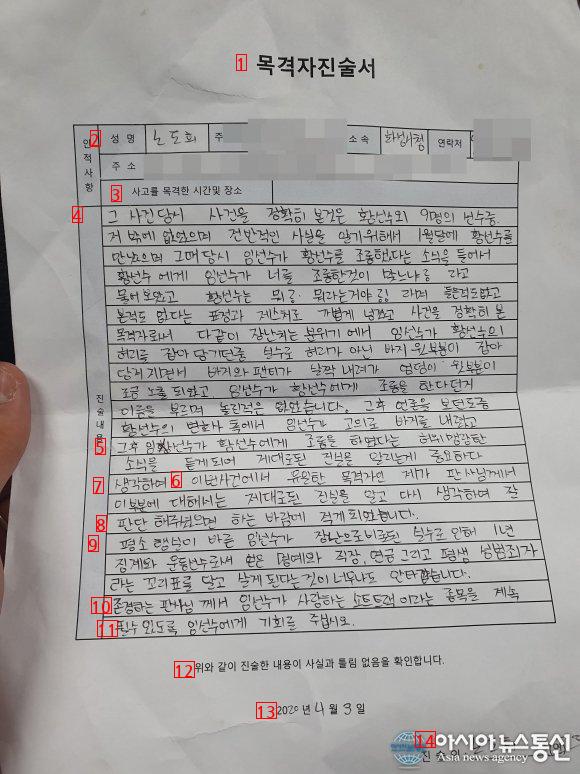 1 목격자진술서
인적사항
2 성 명 노도희 주 소속 화성시청 연락처
주 소
3 사고를 목격한 시간및 장소
4
진술내용
그 사건당시 사건을 정확히 본것은 황선수외 9명의 선수중
거 밖에 없었으며 전반적인 사실을 알기위해서 1월달에 황선수를
만났으며 그때당시 임선수가 황선수를 조롱했다는 소식을 들어서
황선수에게 임선수가 너를 조롱한것이 맞느냐 라고
물어보았고 황선수는 뭐 뭐라는거야 라며 들은적도없고
본적도 없다는 표정과 제스처로 가볍게 넘겼고 사건을 정확히 본
목격자로서 다같이 장난치는 분위기에서 임선수가 황선수의
허리를 잡아 당기던중 실수로 허리가 아닌 바지 윗부분이 잡아
당겨지면서 바지와 팬티가 살짝 내려가 엉덩이 윗부분이
조금 노출되었고 임선수가 황선수에게 조롱을 한다던지
이름을 부르며 놀린적은 없었습니다. 그후 언론을 보던도중
황선수의 변호사 측에서 임선수가 고의로 바지를 내렸고
5 그후 임선수가 황선수에게 조롱을 하였다는 허위 맹랑한
소식을 듣게되어 제대로된 진실을 알리는게 중요하다
7 생각하여 6 이번사건에서 유일한 목격자인 제가 판사님께서
이부분에 대해서는 제대로된 진실을 알고 다시 생각하여 잘
8 판단 해주셨으면 하는 바람에 적게되었습니다.
9 평소 행실이 바른 임선수가 장난으로 비롯된 실수로 인해 1년
징계와 운동선수로서 얻은 명예와 직장, 연금 그리고 평생 성범죄자
라는 꼬리표를 달고 살게 된다는것이 너무나도 안타깝습니다.
10 존경하는 판사님 께서 임선수가 사랑하는 쇼트트랙 이라는 종목을 계속
11 할수 있도록 임선수에게 기회를 주십시오.
12 위와 같이 진술한 내용이 사실과 틀림 없음을 확인합니다.
13 2020 년 4 월 3 일
14 진 술 인 :
아시아뉴스통신
Asia news agency